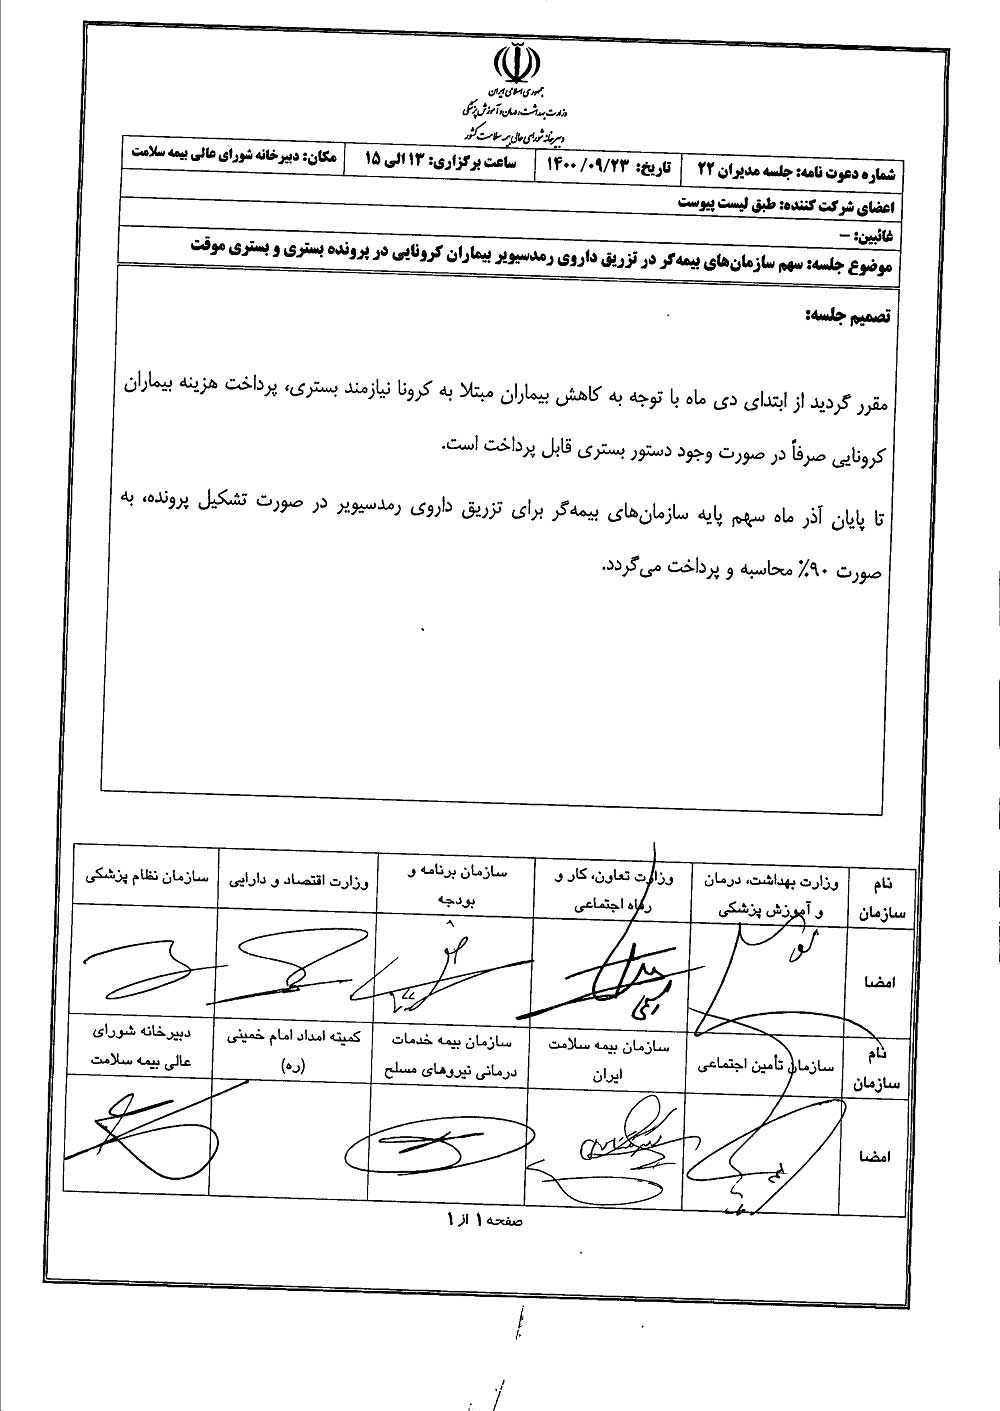 جمهوری اسلامی ایران
وزارت بهداشت، درمان و آموزش پزشکی
دبیرخانه شورای عالی بیمه سلامت کشور
شماره دعوت نامه: جلسه مدیران ۲۲ تاریخ: ۱۴۰۰/۰۹/۲۳ ساعت برگزاری: ۱۳ الی ۱۵ مکان: دبیرخانه شورای عالی بیمه سلامت
اعضای شرکت کننده: طبق لیست پیوست
غائبین: –
موضوع جلسه: سهم سازمان‌های بیمه‌گر در تزریق داروی رمدسیویر بیماران کرونایی در پرونده بستری و بستری موقت
تصمیم جلسه:
مقرر گردید از ابتدای دی ماه با توجه به کاهش بیماران مبتلا به کرونا نیازمند بستری، پرداخت هزینه بیماران
کرونایی صرفاً در صورت وجود دستور بستری قابل پرداخت است.
تا پایان آذر ماه سهم پایه سازمان‌های بیمه‌گر برای تزریق داروی رمدسیویر در صورت تشکیل پرونده، به
صورت ۹۰٪ محاسبه و پرداخت می‌گردد.
نام سازمان
وزارت بهداشت، درمان و آموزش پزشکی
وزارت تعاون، کار و رفاه اجتماعی
سازمان برنامه و بودجه
وزارت اقتصاد و دارایی
سازمان نظام پزشکی
امضا
نام سازمان
سازمان تأمین اجتماعی
سازمان بیمه سلامت ایران
سازمان بیمه خدمات درمانی نیروهای مسلح
کمیته امداد امام خمینی (ره)
دبیرخانه شورای عالی بیمه سلامت
امضا
صفحه ۱ از ۱